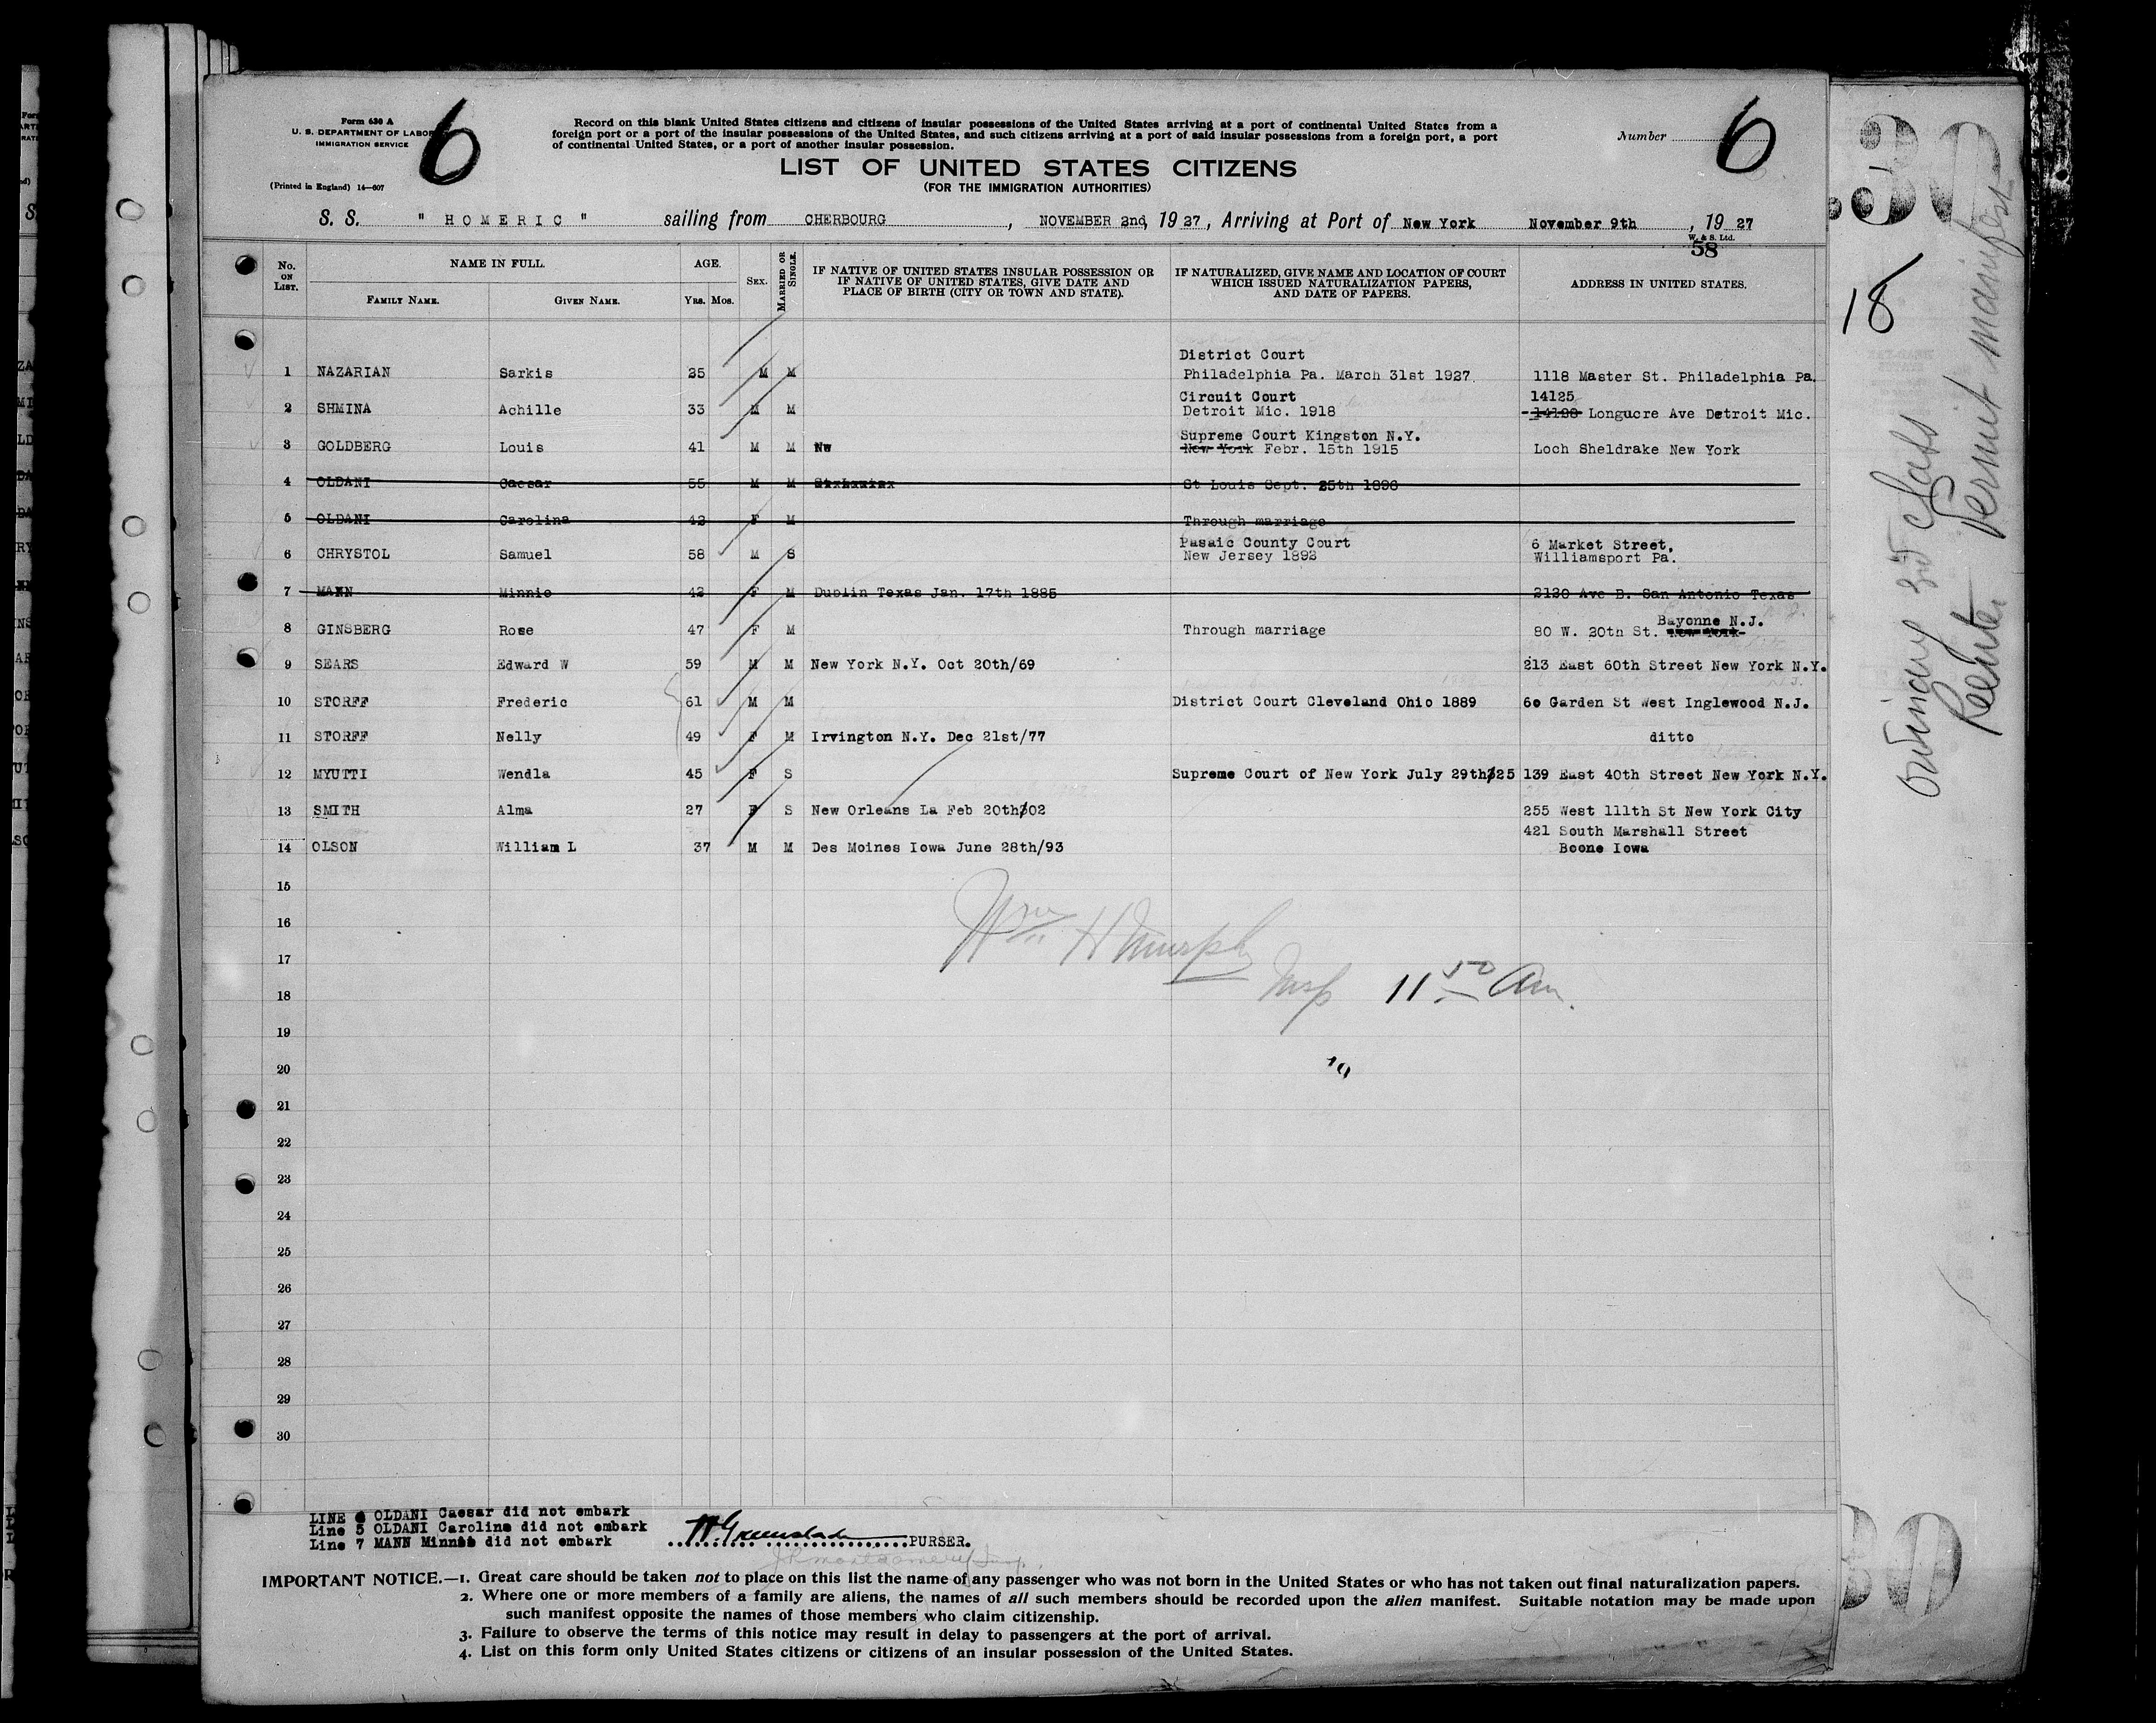 Form 630 A
U. S. DEPARTMENT OF LABOR
IMMIGRATION SERVICE
(Printed in England) 14—607
6
Record on this blank United States citizens and citizens of insular possessions of the United States arriving at a port of continental United States from a
foreign port or a port of the insular possessions of the United States, and such citizens arriving at a port of said insular possessions from a foreign port, a port
of continental United States, or a port of another insular possession.
Number 6
LIST OF UNITED STATES CITIZENS
(FOR THE IMMIGRATION AUTHORITIES)
S. S. " HOMERIC " sailing from CHERBOURG , NOVEMBER 2nd, 19 27 , Arriving at Port of New York November 9th , 19 27
W. & S. Ltd.
58
No. ON LIST. NAME IN FULL. AGE. SEX. MARRIED OR SINGLE. IF NATIVE OF UNITED STATES INSULAR POSSESSION OR IF NATIVE OF UNITED STATES, GIVE DATE AND PLACE OF BIRTH (CITY OR TOWN AND STATE). IF NATURALIZED, GIVE NAME AND LOCATION OF COURT WHICH ISSUED NATURALIZATION PAPERS, AND DATE OF PAPERS. ADDRESS IN UNITED STATES.
FAMILY NAME. GIVEN NAME. Yrs. Mos.
District Court
1 NAZARIAN Sarkis 25 M M Philadelphia Pa. March 31st 1927 1118 Master St. Philadelphia Pa.
Circuit Court 14125
2 SHMINA Achille 33 M M Detroit Mic. 1918 14128 Longucre Ave Detroit Mic.
Supreme Court Kingston N.Y.
3 GOLDBERG Louis 41 M M Nw New York Febr. 15th 1915 Loch Sheldrake New York
4 OLDANI Caesar 55 M M St Louis Sept. 25th 1896
5 OLDANI Carolina 42 F M Through marriage
Pasaic County Court 6 Market Street,
6 CHRYSTOL Samuel 58 M S New Jersey 1892 Williamsport Pa.
7 MANN Minnie 42 F M Dublin Texas Jan. 17th 1885 2120 Ave B. San Antonio Texas
Bayonne N.J.
8 GINSBERG Rose 47 F M Through marriage 80 W. 20th St. New York
9 SEARS Edward W 59 M M New York N.Y. Oct 20th/69 213 East 60th Street New York N.Y.
10 STORFF Frederic 61 M M District Court Cleveland Ohio 1889 60 Garden St West Inglewood N.J.
11 STORFF Nelly 49 F M Irvington N.Y. Dec 21st/77 ditto
12 MYUTTI Wendla 45 F S Supreme Court of New York July 29th/25 139 East 40th Street New York N.Y.
13 SMITH Alma 27 F S New Orleans La Feb 20th/02 255 West 111th St New York City
421 South Marshall Street
14 OLSON William L 37 M M Des Moines Iowa June 28th/93 Boone Iowa
15
16
17
18
19
20
21
22
23
24
25
26
27
28
29
30
Wm H Murphy
Insp 11 50 Am.
LINE 4 OLDANI Caesar did not embark
Line 5 OLDANI Caroline did not embark
Line 7 MANN Minnie did not embark
PURSER.
IMPORTANT NOTICE.—1. Great care should be taken not to place on this list the name of any passenger who was not born in the United States or who has not taken out final naturalization papers.
2. Where one or more members of a family are aliens, the names of all such members should be recorded upon the alien manifest. Suitable notation may be made upon
such manifest opposite the names of those members who claim citizenship.
3. Failure to observe the terms of this notice may result in delay to passengers at the port of arrival.
4. List on this form only United States citizens or citizens of an insular possession of the United States.
30
18
Ordinary 3rd Class
Reenter Permit manifest
30